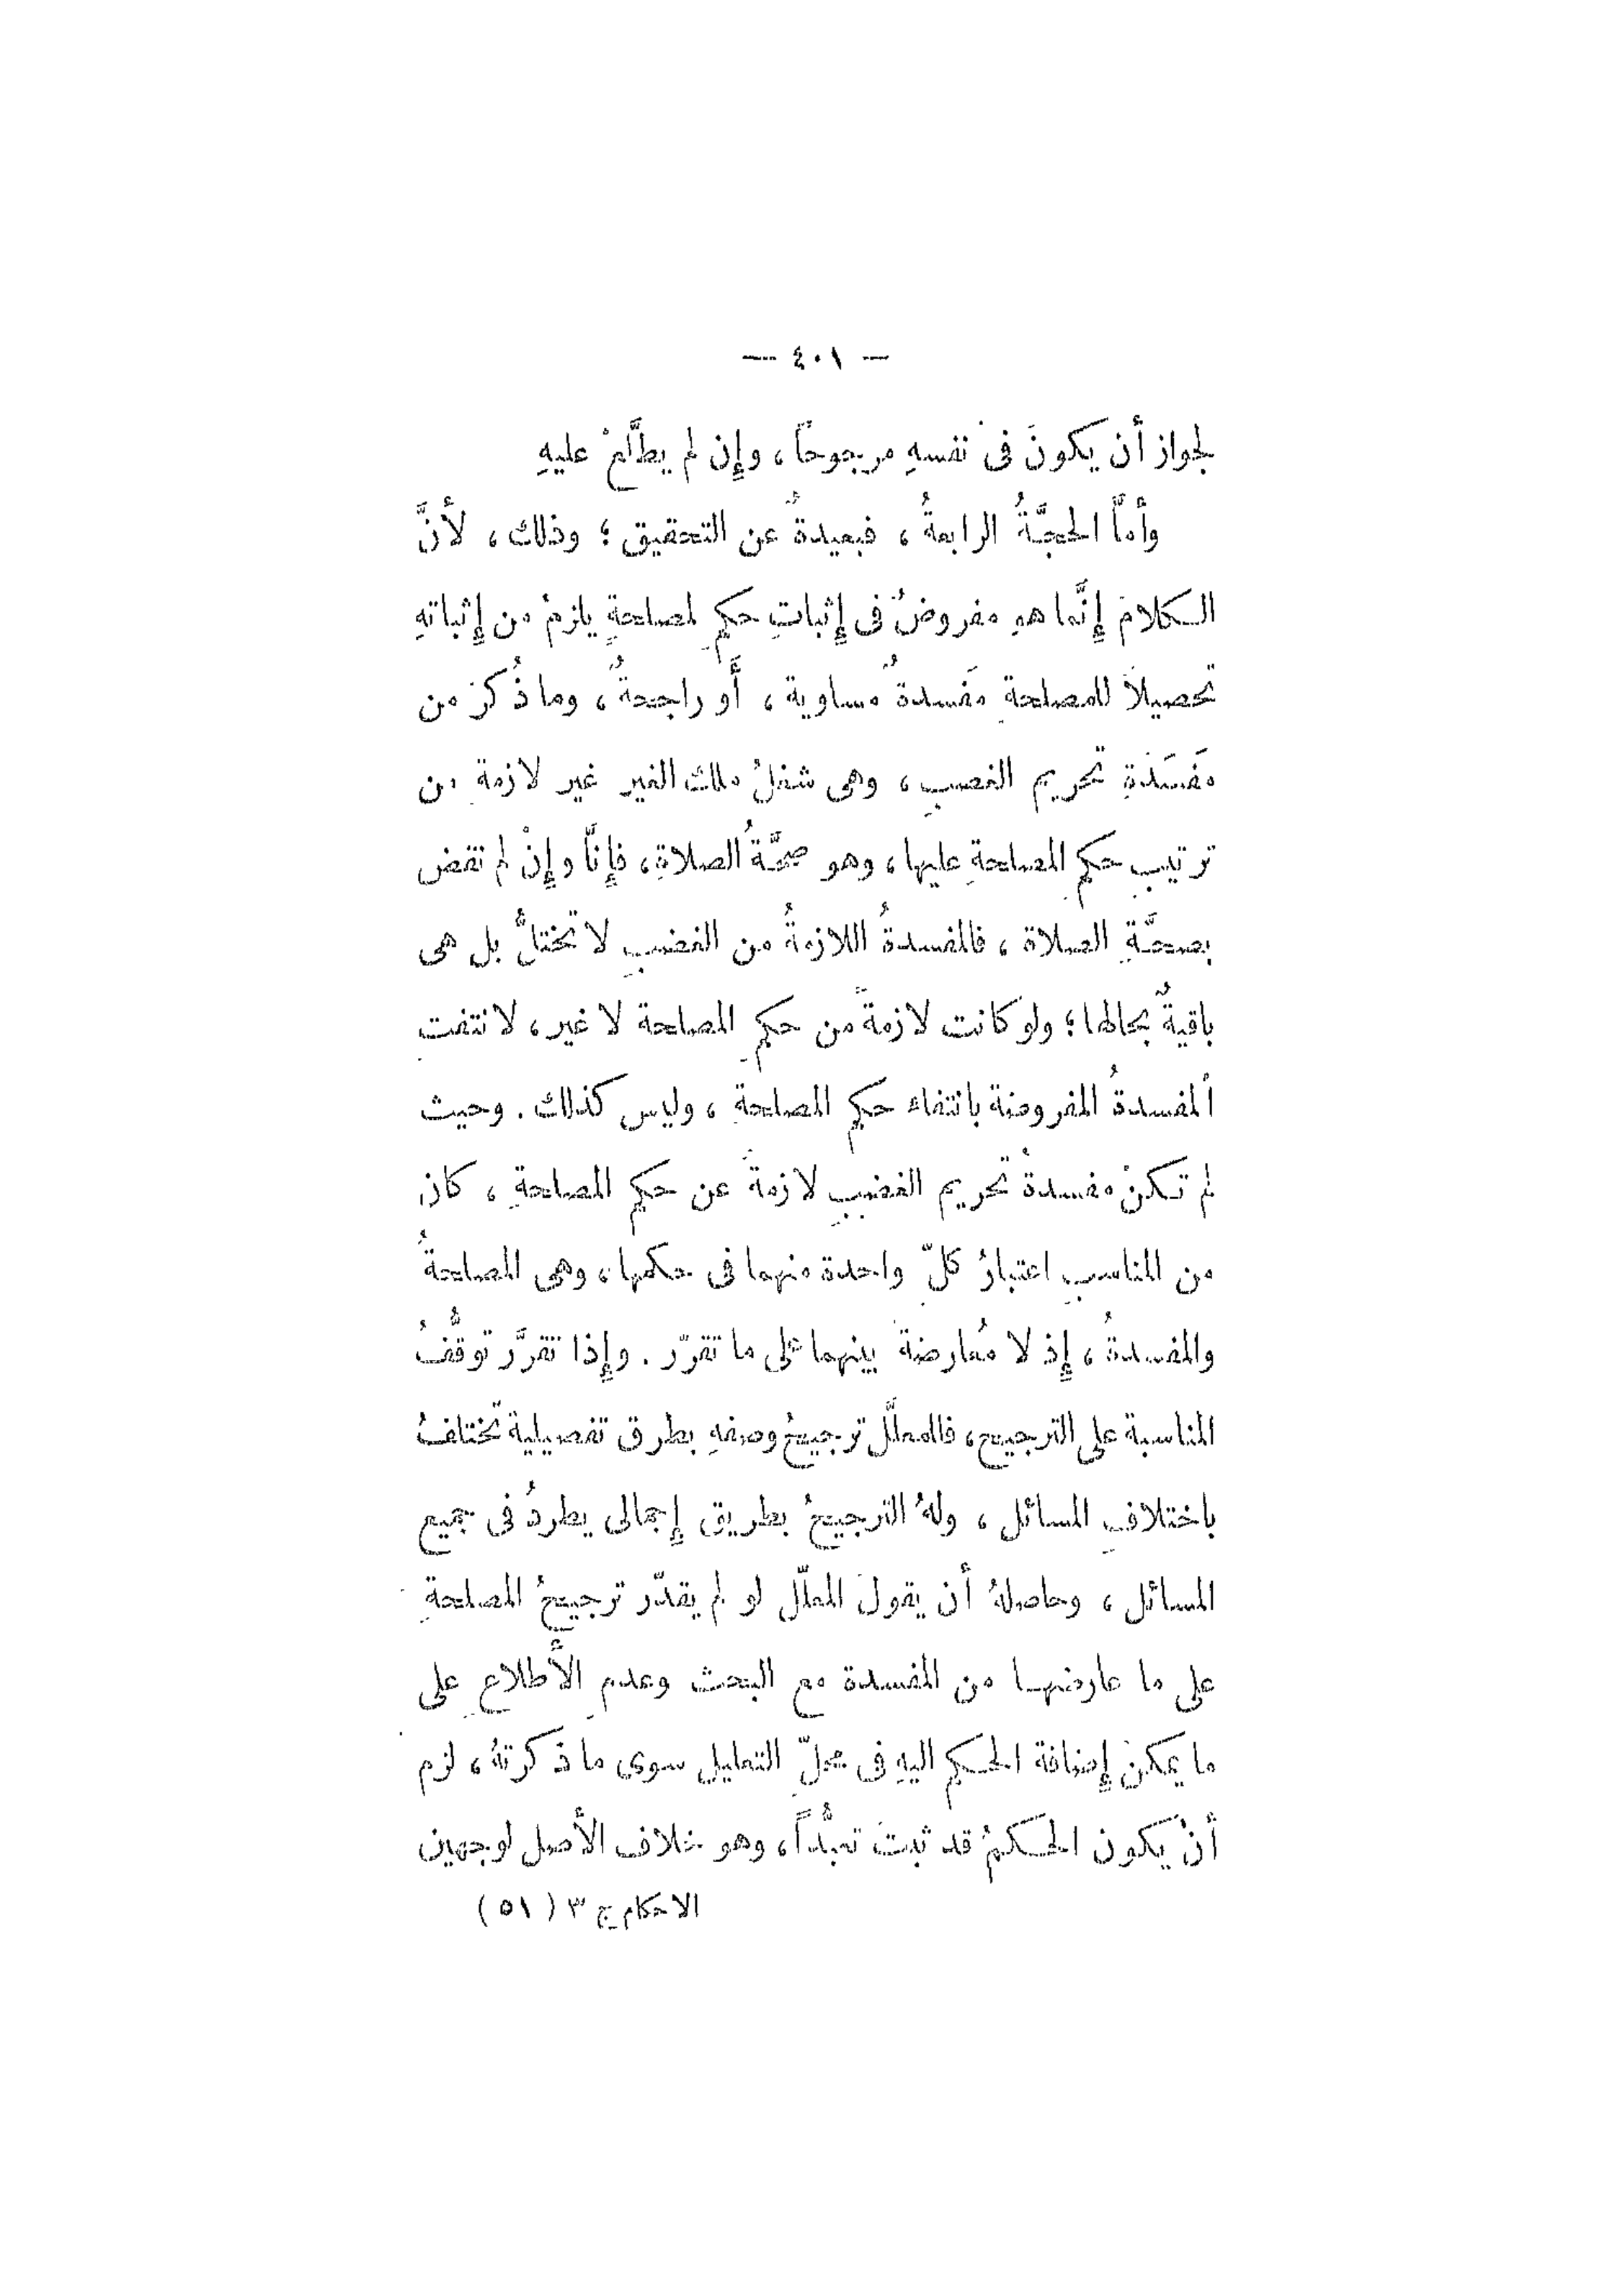 — ٤٠١ —
لجواز أن يكونَ فى نفسهِ مرجوحاً ، وإِن لم يطَّلعْ عليهِ
وأمَّا الحجَّةُ الرابعةُ ، فبعيدةٌ عن التحقيق ؛ وذلك ، لأنَّ
الكلامَ إِنَّما هو مفروضٌ فى إِثباتِ حكمٍ لمصلحةٍ يلزمُ من إِثباتهِ
تحصيلاً للمصلحةِ مَفسدةٌ مُساوية ، أَو راجحةٌ ، وما ذُكرَ من
مَفسَدَةِ تحريم الغصبِ ، وهى شغلُ ملك الغير غير لازمةٍ من
ترتيبِ حكمِ المصلحةِ عليها ، وهو صحَّةُ الصلاةِ ، فإِنَّا وإِنْ لم نقض
بصحَّةِ الصلاة ، فالمفسدةُ اللازمةُ من الغضبِ لا تختلُّ بل هى
باقيةٌ بحالها ؛ ولو كانت لازمةً من حكمِ المصلحة لا غير ، لانتفتِ
ألمفسدةُ المفروضة بانتفاء حكمِ المصلحةِ ، وليس كذلك . وحيث
لم تكنْ مفسدةُ تحريم الغضبِ لازمةً عن حكمِ المصلحةِ ، كان
من المناسبِ اعتبارُ كلّ واحدة منهما فى حكمها ، وهى المصلحةُ
والمفسدةُ ، إِذ لا مُعارضةَ بينهما على ما تقرّر . وإِذا تقرَّر توقُّفُ
المناسبة على الترجيح ، فللمعلّل ترجيحُ وصفهِ بطرق تفصيلية تختلفُ
باختلافِ المسائل ، ولهُ الترجيحُ بطريق إِجمالى يطردُ فى جميع
المسائل ، وحاصلهُ أن يقولَ المعلّل لو لم يقدّر ترجيحُ المصلحةِ
على ما عارضها من المفسدة مع البحث وعدمِ الأَطلاعِ على
ما يمكنُ إِضافة الحكمِ اليهِ فى محلّ التعليلِ سوى ما ذكرتهُ ، لزم
أنْ يكون الحكمُ قد ثبتَ تعبُّداً ، وهو خلاف الأَصل لوجهين
الاحكام ج ٣ (٥١)